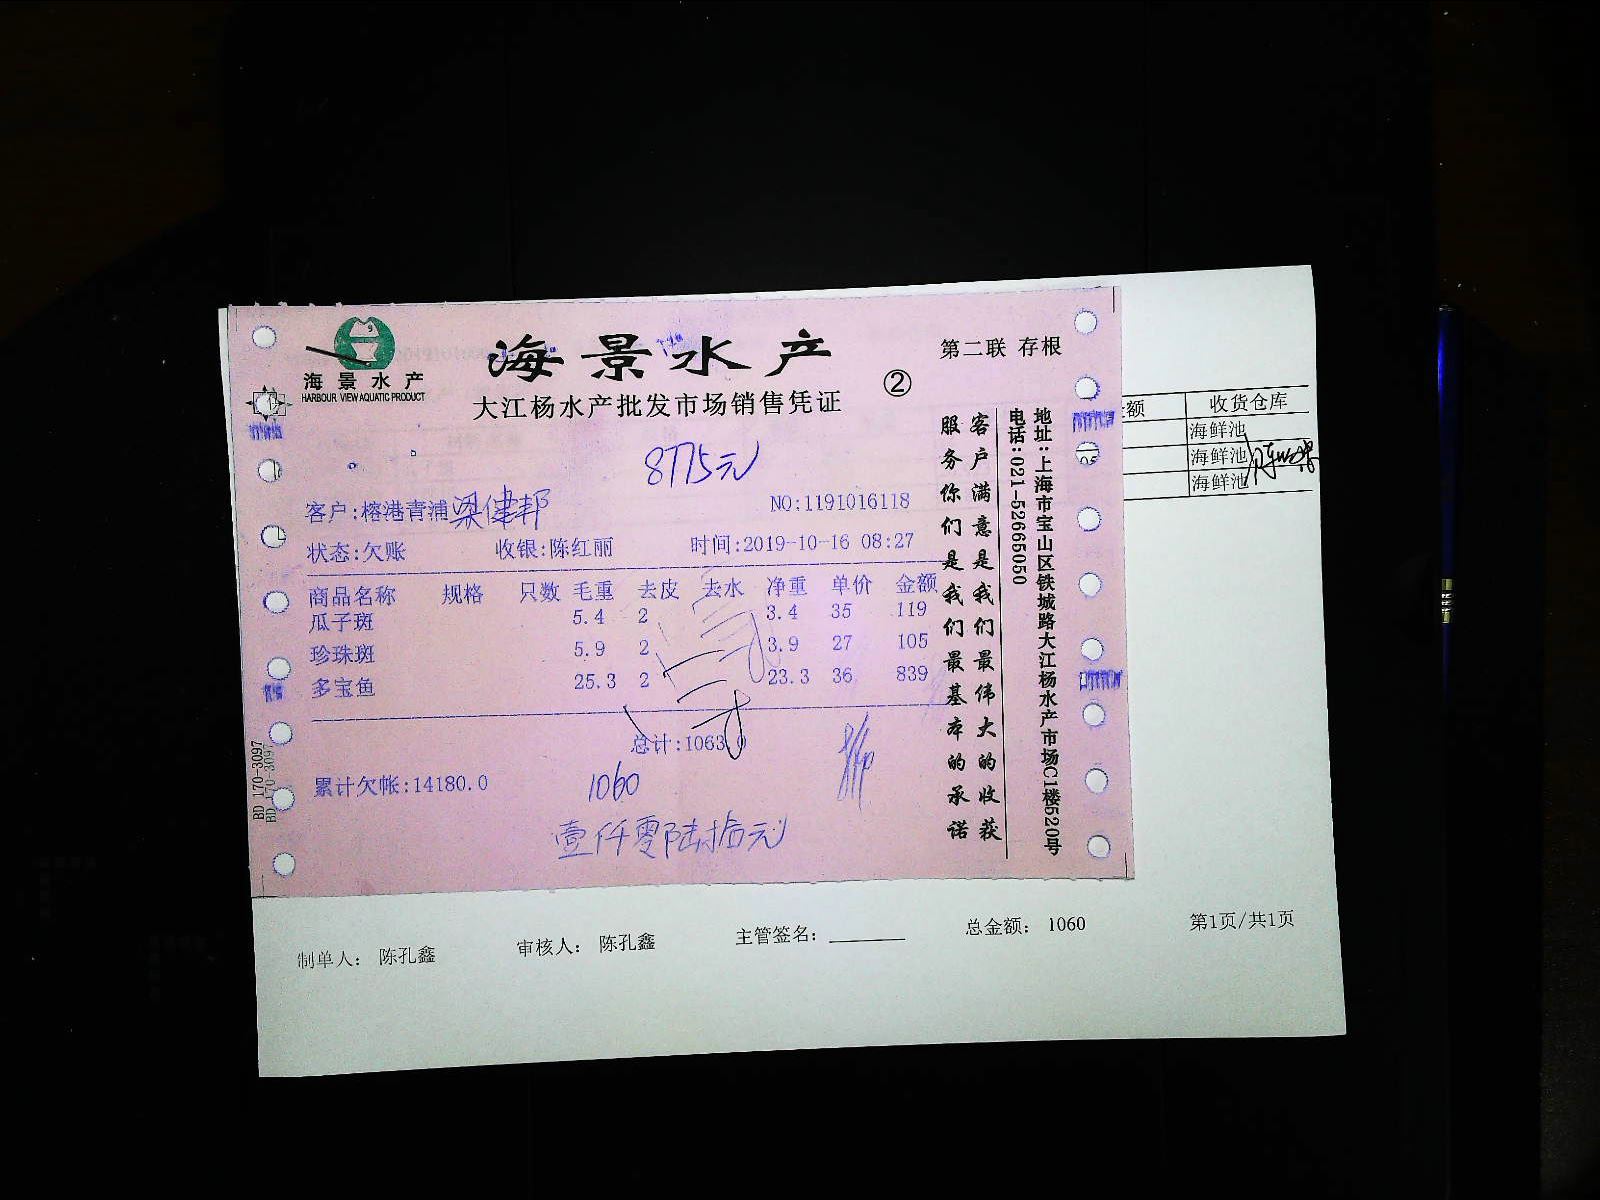 海景水产
HARBOUR VIEW AQUATIC PRODUCT
海景水产
大江杨水产批发市场销售凭证
②
第二联 存根
8775元
客户:榕港青浦 梁健邦
NO:1191016118
状态:欠账 收银:陈红丽 时间:2019-10-16 08:27
商品名称 规格 只数 毛重 去皮 去水 净重 单价 金额
瓜子斑 5.4 2 3.4 35 119
珍珠斑 5.9 2 3.9 27 105
多宝鱼 25.3 2 23.3 36 839
总计:1063.0
累计欠帐:14180.0
1060
壹仟零陆拾元
客户满意是我们最伟大的收获
服务你们是我们最基本的承诺
地址:上海市宝山区铁城路大江杨水产市场C1楼520号
电话:021-52665050
BD 170-3097
BD 170-3097
额 收货仓库
海鲜池
海鲜池
海鲜池
制单人: 陈孔鑫 审核人: 陈孔鑫 主管签名: 总金额: 1060 第1页/共1页